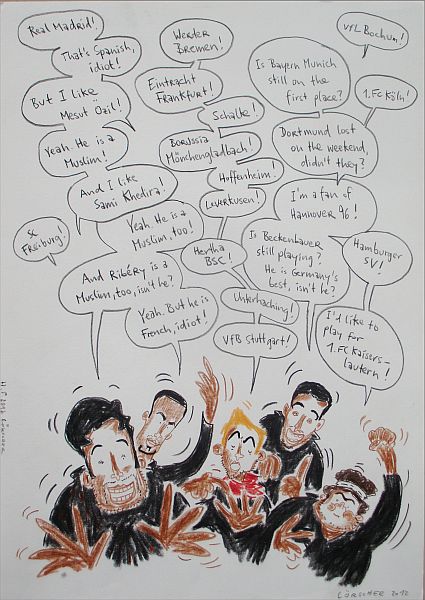 Real Madrid!
That's Spanish,
idiot!
But I like
Mesut Özil!
Yeah. He is a
Muslim!
And I like
Sami Khedira!
Yeah. He is a
Muslim, too!
And Ribéry is a
Muslim, too, isn't he?
Yeah. But he is
French, idiot!
SC
Freiburg!
Werder
Bremen!
Eintracht
Frankfurt!
Schalke!
Borussia
Mönchengladbach!
Hoffenheim!
Leverkusen!
Hertha
BSC!
Unterhaching!
VfB Stuttgart!
Is Bayern Munich
still on the
first place?
Dortmund lost
on the weekend,
didn't they?
I'm a fan of
Hannover 96!
Is Beckenbauer
still playing?
He is Germany's
best, isn't he?
VfL Bochum!
1. FC Köln!
Hamburger
SV!
I'd like to
play for
1. FC Kaisers-
lautern!
LÖRSCHER 2012